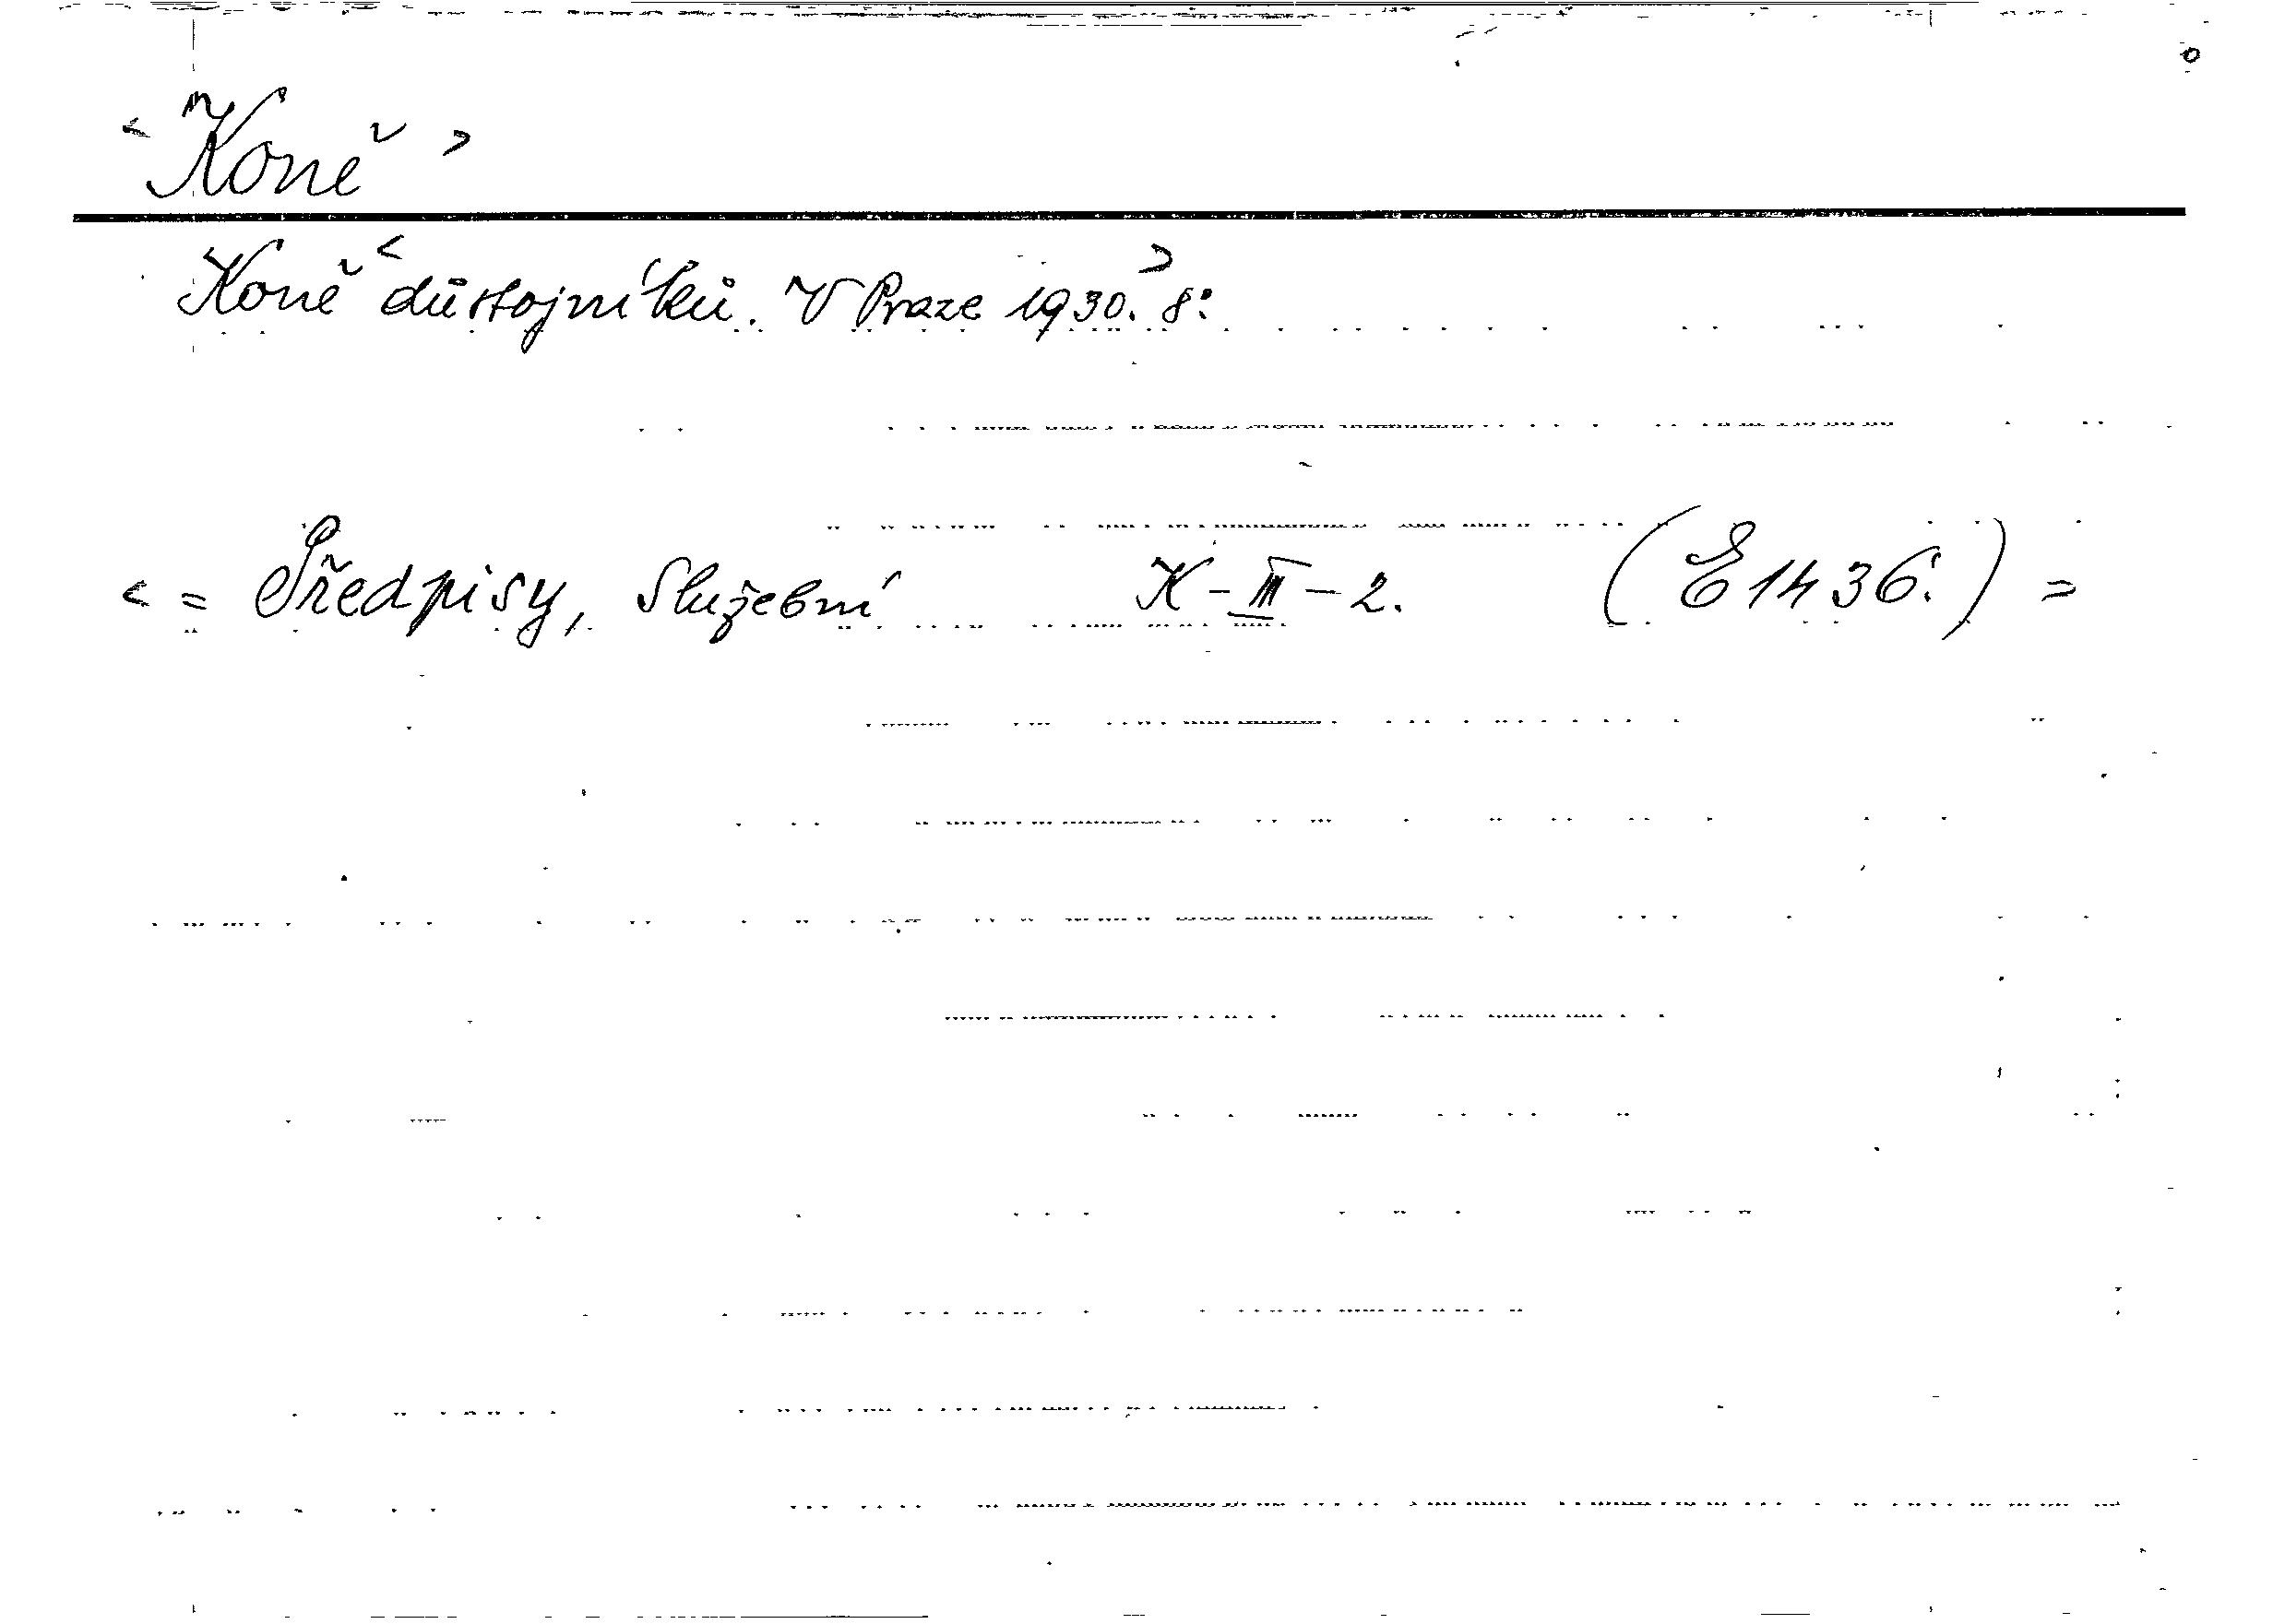 < Koně >
Koně < důstojníků. V Praze 1930. > 8:
< = Předpisy, Služební K-III-2. (E 1436.) =